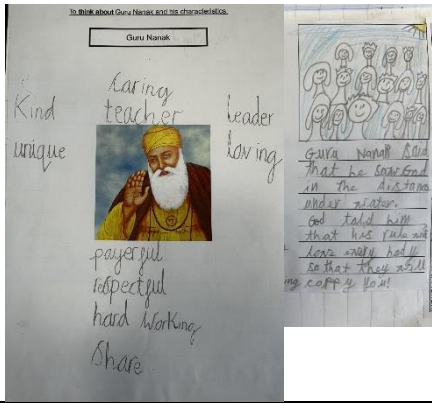 To think about Guru Nanak and his characteristics.
Guru Nanak
Caring
Kind teacher Leader
unique loving
payerful
respectful
hard working
Share
Guru Nanak said
that he saw God
in the distance
under water.
God told him
that his rule
love every body
so that they will
coppy you!